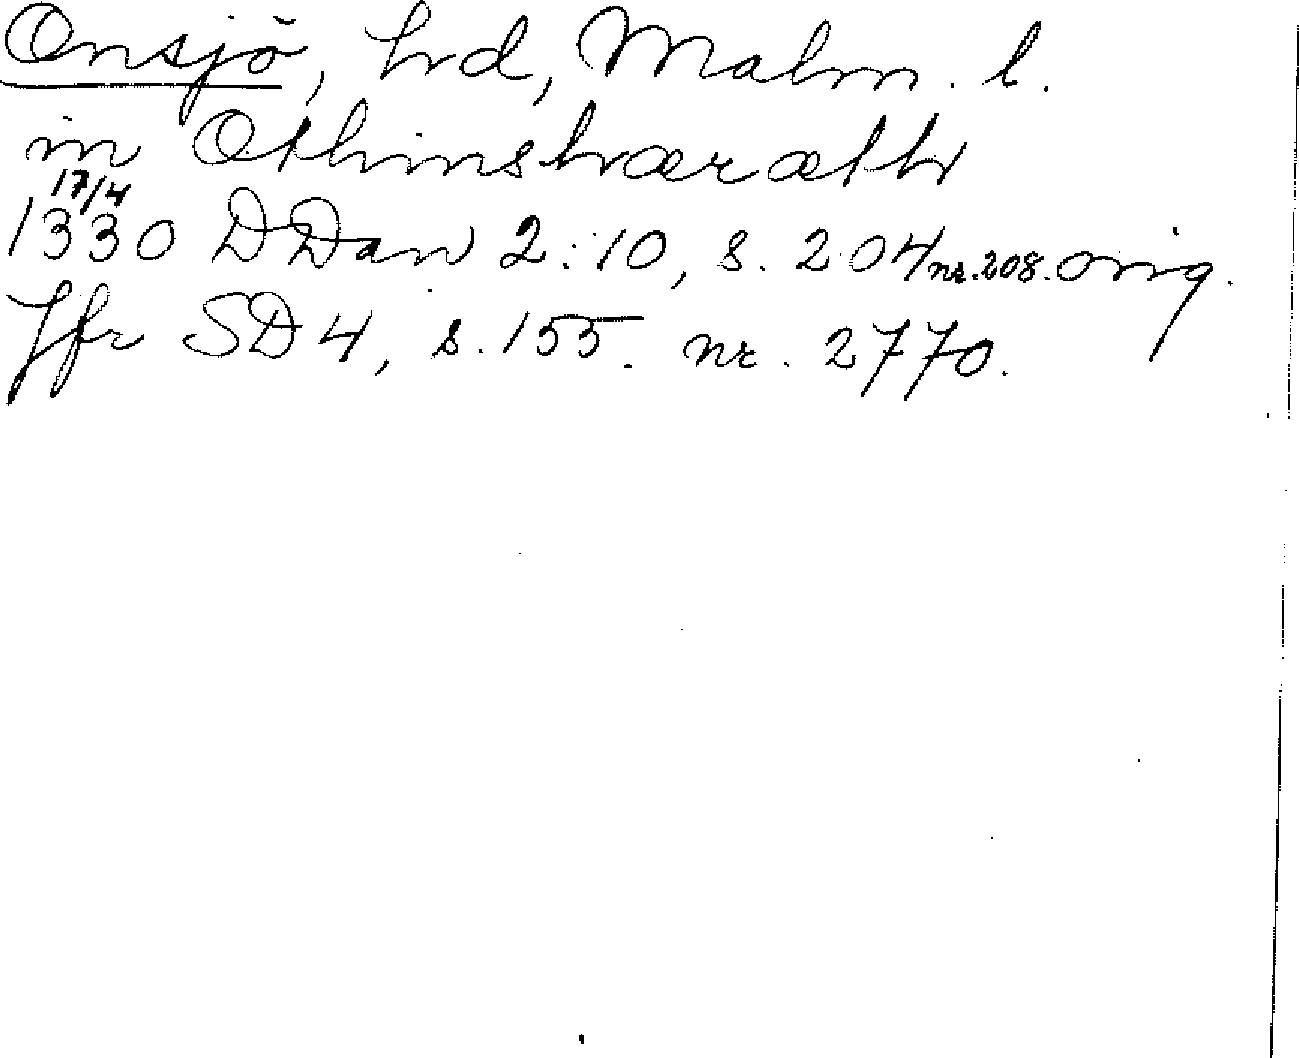 Onsjö, hd, Malm. l.
in Othinshæræth
17/4
1330 DDan 2:10, s. 204 nr. 208. orig.
Jfr SD 4, s. 155. nr. 2770.